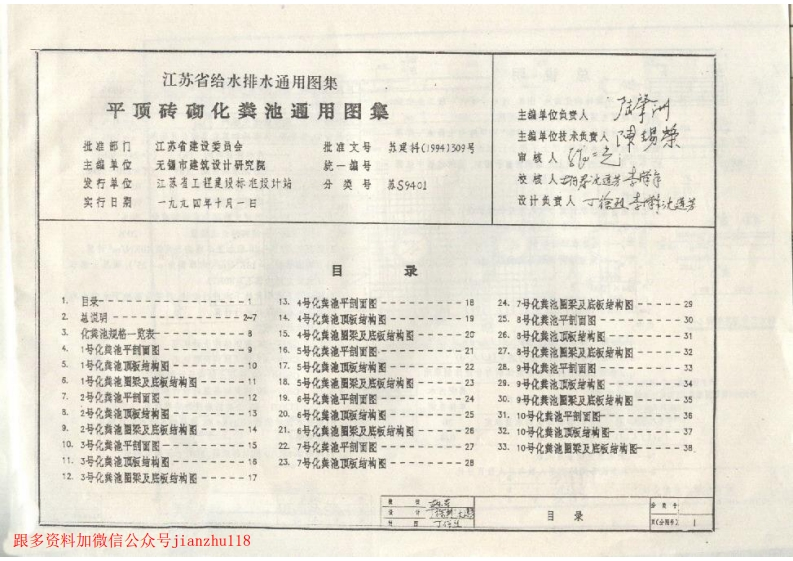 江苏省给水排水通用图集
平顶砖砌化粪池通用图集
批准部门 江苏省建设委员会 批准文号 苏建科(1994)309号
主编单位 无锡市建筑设计研究院 统一编号
发行单位 江苏省工程建设标准设计站 分类号 苏S9401
实行日期 一九九四年十月一日
主编单位负责人
主编单位技术负责人 陳锡荣
审核人
校核人
设计负责人
目录
1. 目录 1
2. 总说明 2-7
3. 化粪池规格一览表 8
4. 1号化粪池平剖面图 9
5. 1号化粪池顶板结构图 10
6. 1号化粪池圈梁及底板结构图 11
7. 2号化粪池平剖面图 12
8. 2号化粪池顶板结构图 13
9. 2号化粪池圈梁及底板结构图 14
10. 3号化粪池平剖面图 15
11. 3号化粪池顶板结构图 16
12. 3号化粪池圈梁及底板结构图 17
13. 4号化粪池平剖面图 18
14. 4号化粪池顶板结构图 19
15. 4号化粪池圈梁及底板结构图 20
16. 5号化粪池平剖面图 21
17. 5号化粪池顶板结构图 22
18. 5号化粪池圈梁及底板结构图 23
19. 6号化粪池平剖面图 24
20. 6号化粪池顶板结构图 25
21. 6号化粪池圈梁及底板结构图 26
22. 7号化粪池平剖面图 27
23. 7号化粪池顶板结构图 28
24. 7号化粪池圈梁及底板结构图 29
25. 8号化粪池平剖面图 30
26. 8号化粪池顶板结构图 31
27. 8号化粪池圈梁及底板结构图 32
28. 9号化粪池平剖面图 33
29. 9号化粪池顶板结构图 34
30. 9号化粪池圈梁及底板结构图 35
31. 10号化粪池平剖面图 36
32. 10号化粪池顶板结构图 37
33. 10号化粪池圈梁及底板结构图 38
设计
目录
分类号
页(合图号) 1
跟多资料加微信公众号jianzhu118